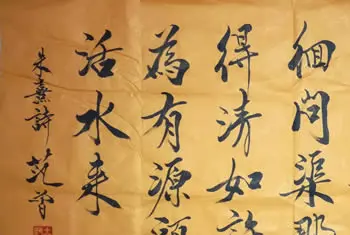 徊问渠那
得清如許
為有源頭
活水来
朱熹詩 范曾